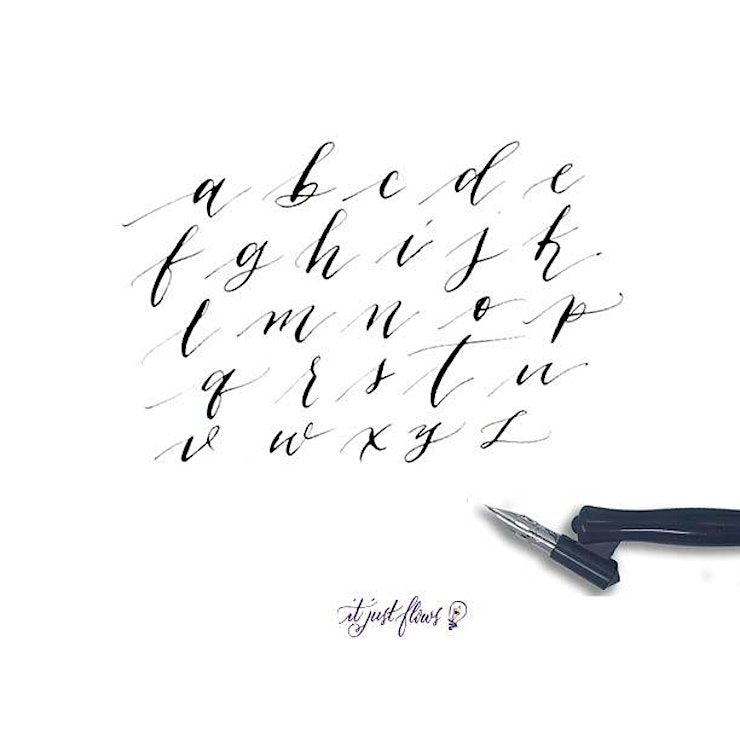 a b c d e
f g h i j k
l m n o p
q r s t u
v w x y z
it just flows